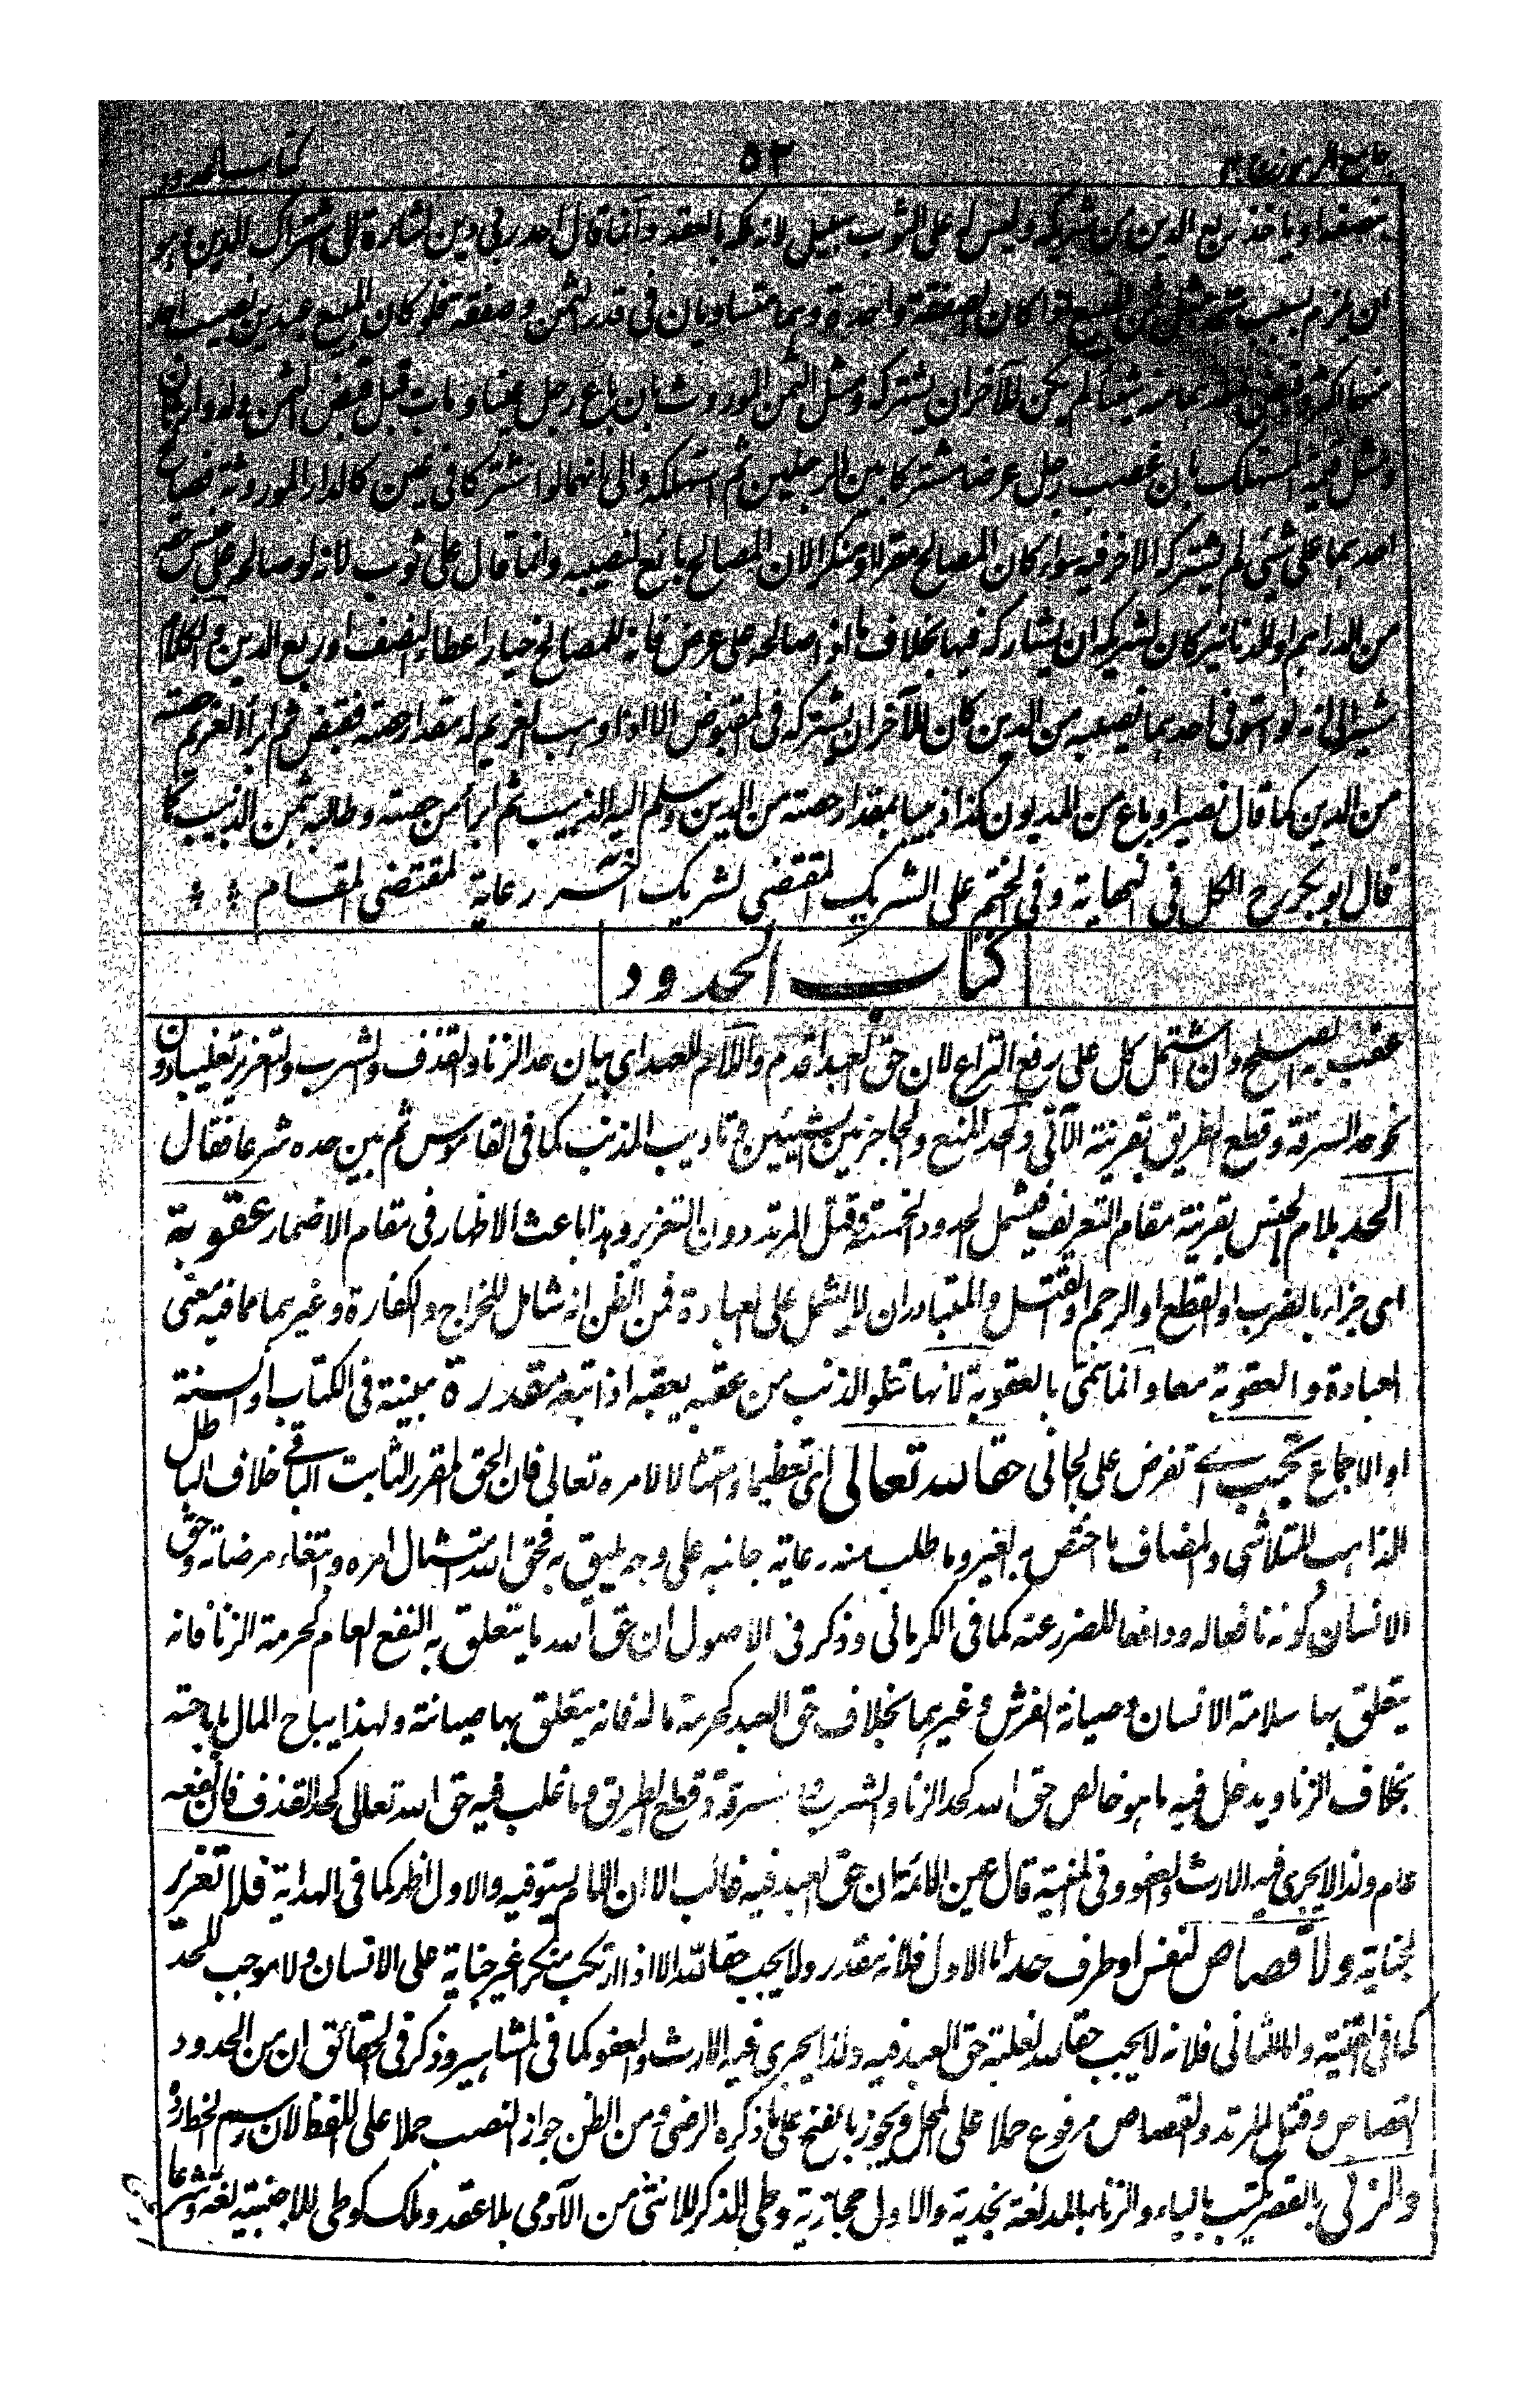 جامع الرموز ج ٢ ٥٢ كتاب الحدود
نصفه او ياخذ ربع الدين من شريكه وليس له على الثوب سبيل لانه ملكه بالعقد وانما قال احد ربى دين اشارة الى اشتراك الدين وهو
ان يلزم بسبب متحد مثل ثمن المبيع اذا كان الصفقة واحدة وهما متساويان فى قدر الثمن وصفقه فلو كان المبيع عبدين نصيب احد
منهما اكثر لم يكن للآخر ان يشتركه ومثل الثمن الموروث بان باع رجل عينا ومات قبل قبض الثمن وله وارثان
ومثل قيمة المستهلك بان غصب رجل عرضا مشتركا بين الرجلين ثم استهلكه والى انهما لو اشتركا فى عين كالدار الموروثة فصالح
احدهما على شئ لم يشتركه الآخر فيه سواء كان المصالح مقرا او منكرا لان المصالح بائع لنصيبه وانما قال على ثوب لانه لو صالحه على جنس حقه
من الدراهم او الدنانير كان لشريكه ان يشاركه فيها بخلاف ما اذا صالحه على عرض فانه للمصالح خيار اعطاء النصف او ربع الدين والكلام
مشير الى انه لو استوفى احدهما نصيبه من الدين كان للآخر ان يشتركه فى المقبوض الا اذا وهب الغريم له مقدار حصته فقبض ثم ابرأ الغريم حصته
من الدين كما قال نصير او باع من المديون كذا زبيبا بمقدار حصته من الدين وسلم اليه الزبيب ثم ابرأ من حصته وطالبه بثمن الزبيب كما
قال ابو بكر رح الكل فى النهاية وفى الختم على الشريك المقتضى لشريك آخر رعاية لمقتضى المقام
كتاب الحدود
عقب به الصلح وان اشتمل كل على رفع النزاع لان حق العبد اقدم والآلام للعهد اى بيان حد الزنا والقذف والشرب والتعزير تغليبا دون
نحو حد السرقة وقطع الطريق بقرينة الآتى والحد المنع والحاجز بين الشيئين وتاديب المذنب كما فى القاموس ثم بين حده شرعا فقال
الحد بلام الجنس بقرينة مقام التعريف فيشمل الحدود الخمسة وقتل المرتد دون التعزير وهذا باعث الاظهار فى مقام الاضمار عقوبة
اى جزاء بالضرب او القطع او الرجم او القتل والمتبادر ان لا يشمل على العبادة فمن الظن انه شامل للخراج والكفارة وغيرهما مما فيه معنى
العبادة والعقوبة معا وانما سمى بالعقوبة لانها تتلو الذنب من عقبه يعقبه اذا تبعه مقدرة مبينة فى الكتاب او السنة
او الاجماع تجب اى تفرض على الجانى حقا لله تعالى اى تعظيما وامتثالا لامره تعالى فان الحق المقرر الثابت الباقى خلاف الباطل
الذاهب المتلاشى والمضاف ما اختص به الغير وما طلب منه رعاية جانبه على وجه يليق به فحق الله امتثال امره وابتغاء مرضاته وحق
الانسان كونه نافعا له ودافعا للضرر عنه كما فى الكرمانى وذكر فى الاصول ان حق الله ما يتعلق به النفع العام كحرمة الزنا فانه
يتعلق بها سلامة الانسان وصيانة الفرش وغيرهما بخلاف حق العبد كحرمة ماله فانه يتعلق بها صيانته ولهذا يباح المال باباحته
بخلاف الزنا ويدخل فيه ما هو خالص حق الله كحد الزنا والشرب والسرقة وقطع الطريق وما غلب فيه حق الله تعالى كحد القذف فان نفعه
عام ولذا لا يجرى فيه الارث والعفو وفى المنية قال عين الائمة ان حق العبد فيه غالب الا ان الامام يستوفيه والاول اظهر كما فى الهداية فلا تعزير
لجناية ولا قصاص لنفس او طرف حد اما الاول فلانه مقدر ولا يجب حقا لله الا اذا ارتكب منكرا غير جناية على الانسان ولا موجب للحد
كما فى القنية واما الثانى فلانه لا يجب حقا لله لغلبة حق العبد فيه ولذا يجرى فيه الارث والعفو كما فى المشاهير وذكر فى الحقائق ان من الحدود
القصاص وقتل المرتد والقصاص مرفوع حملا على المحل ويجوز بالفتح على ما ذكره الرضى ومن الظن جواز النصب حملا على اللفظ لان رسم الخط
والزنى بالقصر يكتب بالياء والزنا بالمد لغة نجدية والاول حجازية وطى الذكر للانثى من الآدمى بلا عقد وملك كوطى للاجنبية لغة وشرعا